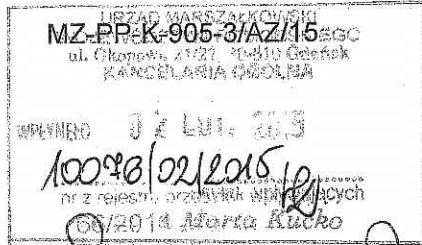 URZĄD MARSZAŁKOWSKI
MZ-PP-K-905-3/AZ/15
ul. Okopowa 21/27, 80-810 Gdańsk
KANCELARIA OGÓLNA
WPŁYNĘŁO 02 LUT. 2015
10078/02/2015
nr z rejestru przesyłek wpływających
66/2014 Marta Kućko